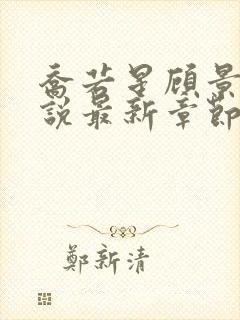 喬若星顧景
說最新章節
鄭新清